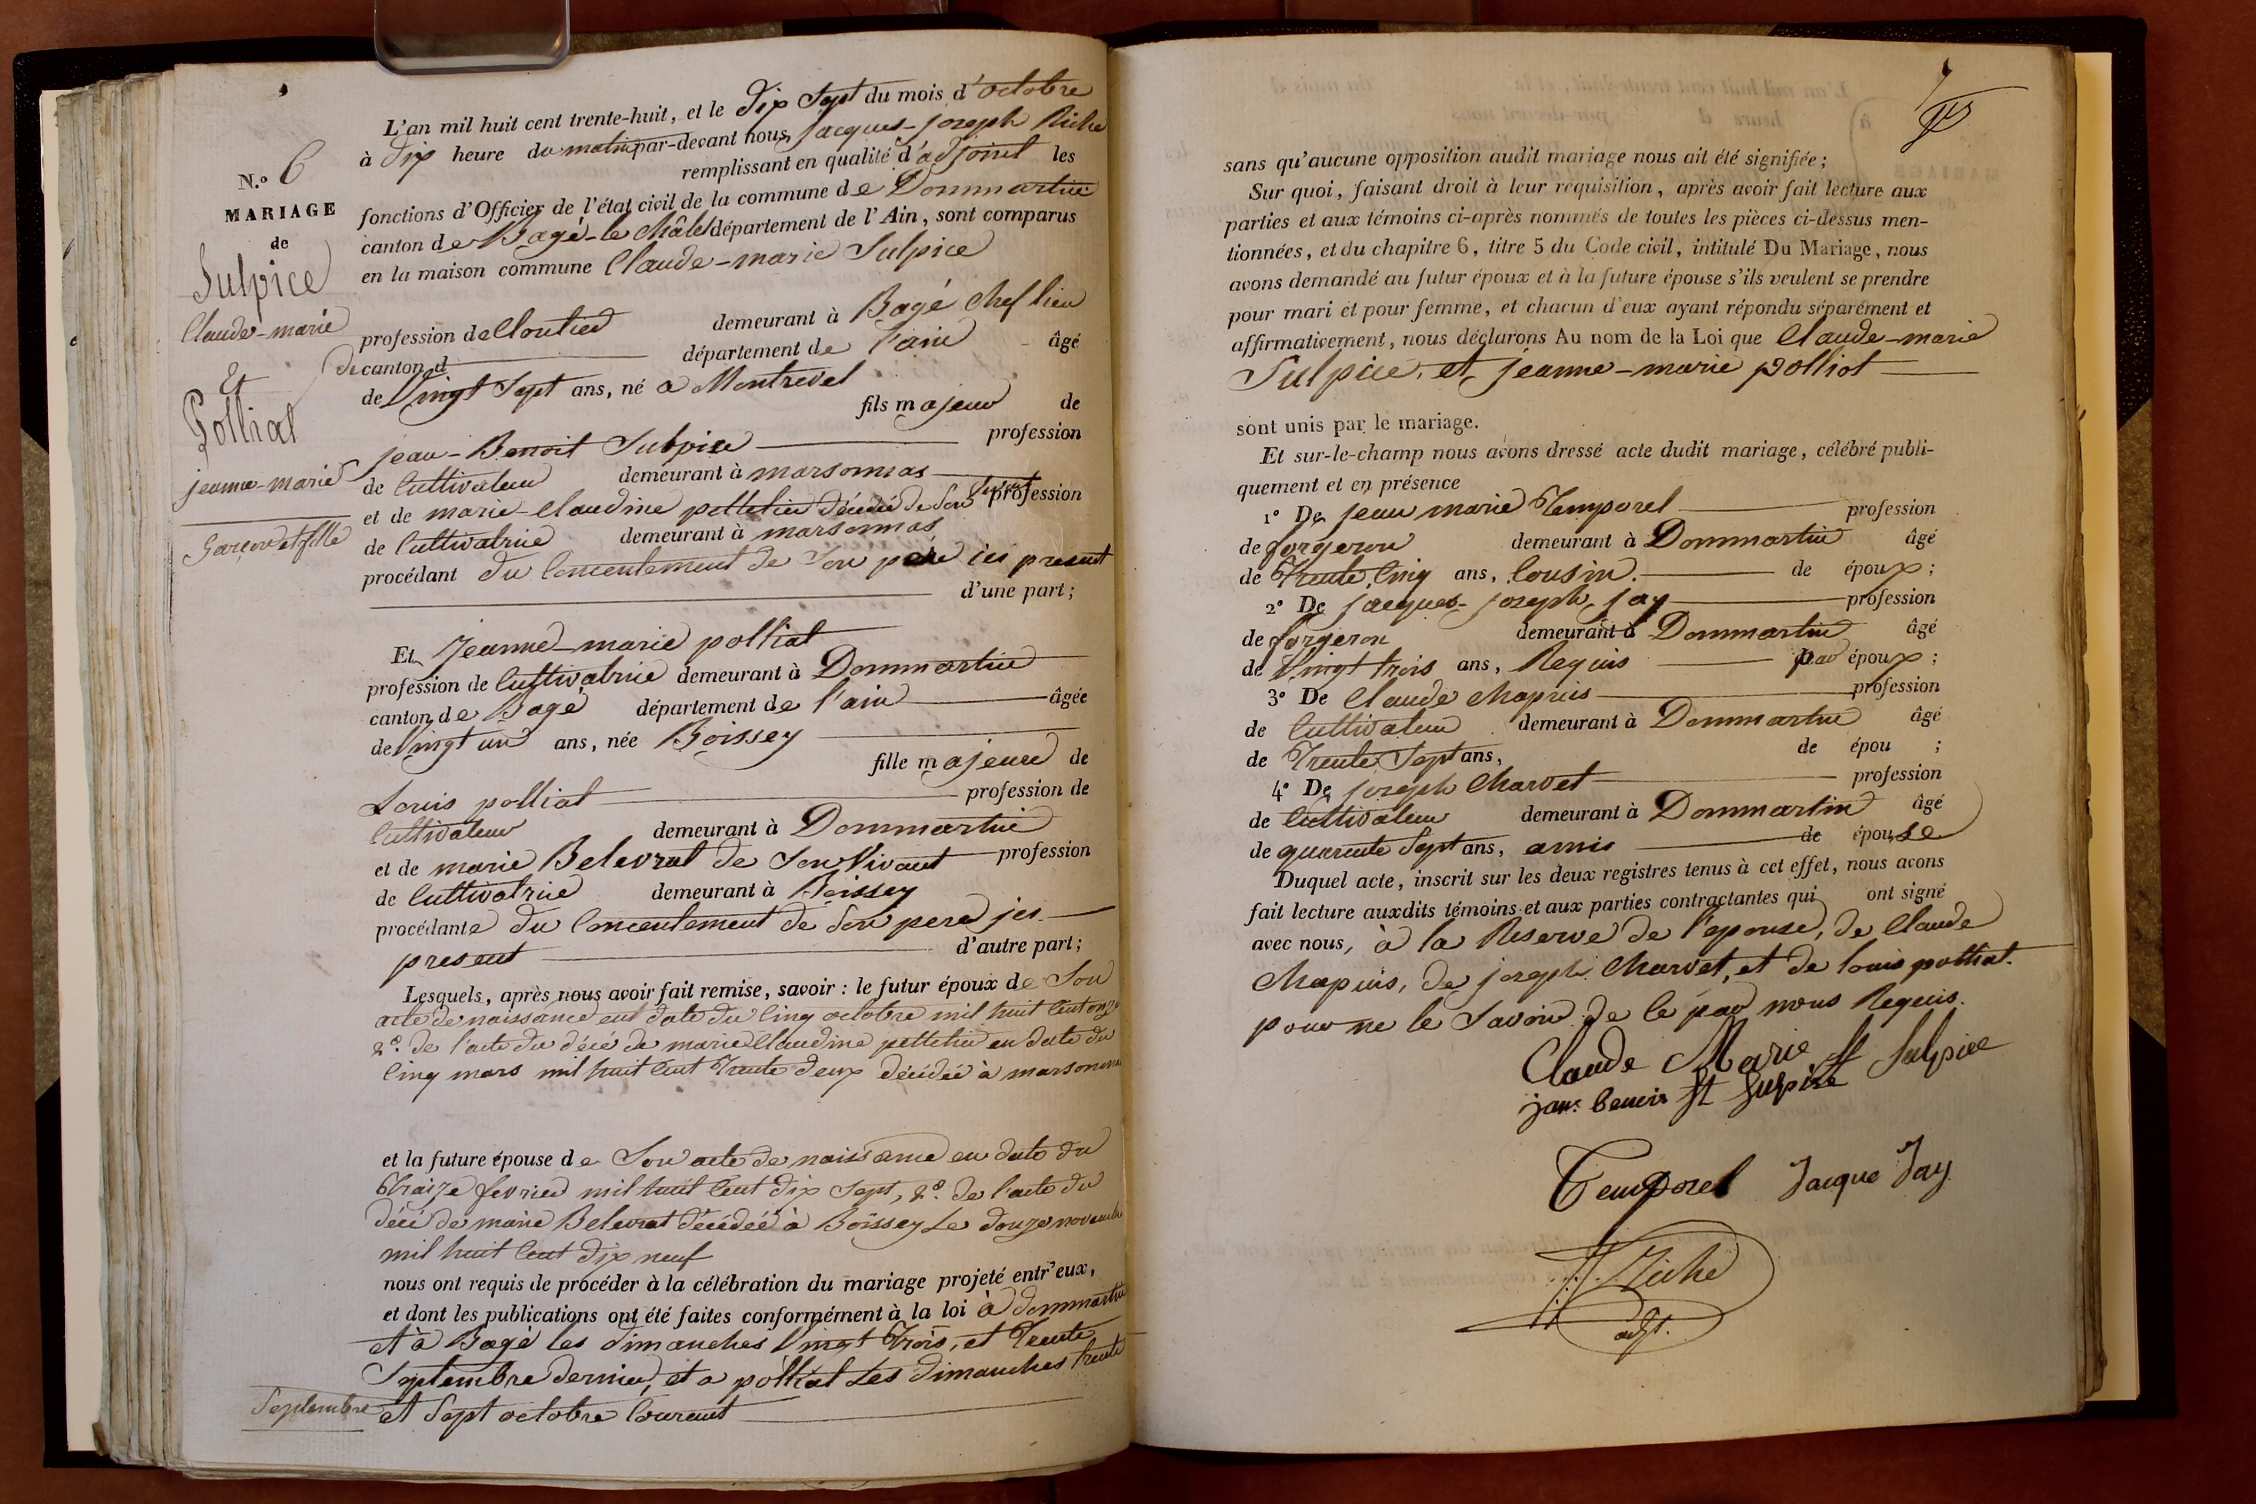 N.o 6
MARIAGE
de
Sulpice
Claude-marie
Et
Polliat
jeanne-marie
Garçon et fille
L'an mil huit cent trente-huit, et le dix Sept du mois d'octobre
à dix heure du matin par-devant nous, jacques-joseph Riche
remplissant en qualité d'adjoint les
fonctions d'Officier de l'état civil de la commune de Dommartin
canton de Bagé-le Châtel département de l'Ain, sont comparus
en la maison commune Claude-marie Sulpice
profession de Cloutier demeurant à Bagé chef lieu
de canton d département de l'ain âgé
de Vingt Sept ans, né à Montrevel
fils majeur de
jean-Benoit Sulpice profession
de Cultivateur demeurant à marsonnas
et de marie-Claudine pelletier décédée de Son vivant profession
de Cultivatrice demeurant à marsonnas
procédant du Concentement de Son père ici present
d'une part;
Et Jeanne-marie polliat
profession de Cultivatrice demeurant à Dommartin
canton de Bagé département de l'ain âgée
de Vingt un ans, née Boissey
fille majeure de
Louis polliat profession de
Cultivateur demeurant à Dommartin
et de marie Belevrat de Son Vivant profession
de Cultivatrice demeurant à Boissey
procédante du Concentement de Son pere jci
present d'autre part;
Lesquels, après nous avoir fait remise, savoir: le futur époux de Son
acte de naissance en date du Cinq octobre mil huit Cent onze
2o. de l'acte du décé de marie Claudine pelletier en date du
Cinq mars mil huit Cent Trente deux décédée à marsonnas
et la future épouse de Son acte de naissance en date du
Thraize fevrier mil huit Cent dix Sept, 2o. de l'acte du
décé de marie Belevrat décédée à Boissey Le douze novembre
mil huit Cent dix neuf
nous ont requis de procéder à la célébration du mariage projeté entr'eux,
et dont les publications ont été faites conformément à la loi à dommartin
et à Bagé les dimanches Vingt Trois, et Trente
Septembre dernier, et a polliat Les dimanches trente
Septembre et Sept octobre Courant
sans qu'aucune opposition audit mariage nous ait été signifiée;
Sur quoi, faisant droit à leur réquisition, après avoir fait lecture aux
parties et aux témoins ci-après nommés de toutes les pièces ci-dessus men-
tionnées, et du chapitre 6, titre 5 du Code civil, intitulé Du Mariage, nous
avons demandé au futur époux et à la future épouse s'ils veulent se prendre
pour mari et pour femme, et chacun d'eux ayant répondu séparément et
affirmativement, nous déclarons Au nom de la Loi que Claude-marie
Sulpice, et jeanne-marie polliat
sont unis par le mariage.
Et sur-le-champ nous avons dressé acte dudit mariage, célébré publi-
quement et en présence
1o De jean marie Temporel profession
de forgeron demeurant à Dommartin âgé
de Trente Cinq ans, Cousin de époux;
2o De jacques-joseph jay profession
de forgeron demeurant à Dommartin âgé
de Vingt trois ans, Requis par époux;
3o De Claude Chapuis profession
de Cultivateur demeurant à Dommartin âgé
de Trente Sept ans, de épou ;
4o De joseph Charvet profession
de Cultivateur demeurant à Dommartin âgé
de quarente Sept ans, amis de épouse
Duquel acte, inscrit sur les deux registres tenus à cet effet, nous avons
fait lecture auxdits témoins et aux parties contractantes qui ont signé
avec nous, à la Reserve de l'epouse, de Claude
Chapuis, de joseph Charvet, et de louis polliat.
pour ne le Savoir de Ce par nous Requis.
Claude Marie St Sulpice
jan benoir St Sulpice
Temporel Jacque Jay
Riche
adjt.